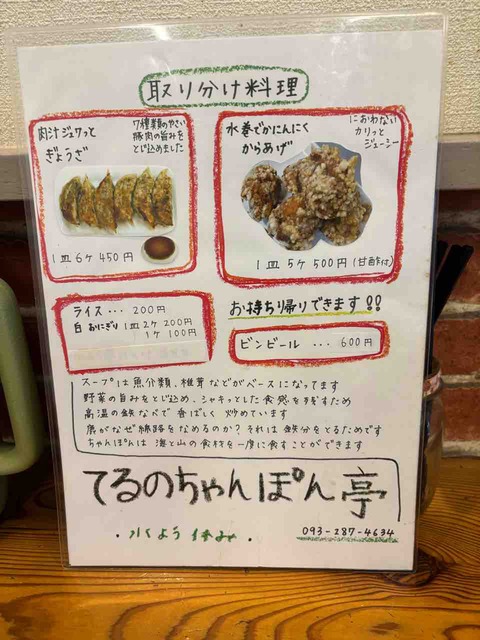 取り分け料理
肉汁ジュワっと
ぎょうざ
7種類のやさい
豚肉の旨みを
とじ込めました
1皿 6ケ 450円
水巻でかにんにく
からあげ
におわない
カリっと
ジューシー
1皿 5ケ 500円(甘酢付)
ライス・・・200円
白おにぎり 1皿2ケ 200円
1ケ 100円
お持ち帰りできます!!
ビンビール ・・・ 600円
スープは魚介類、椎茸などがベースになってます
野菜の旨みをとじ込め、シャキッとした食感を残すため
高温の鉄なべで香ばしく炒めています
鹿がなぜ線路をなめるのか?それは鉄分をとるためです
ちゃんぽんは海と山の食材を一度に食すことができます
てるのちゃんぽん亭
・水よう休み・
093-287-4634